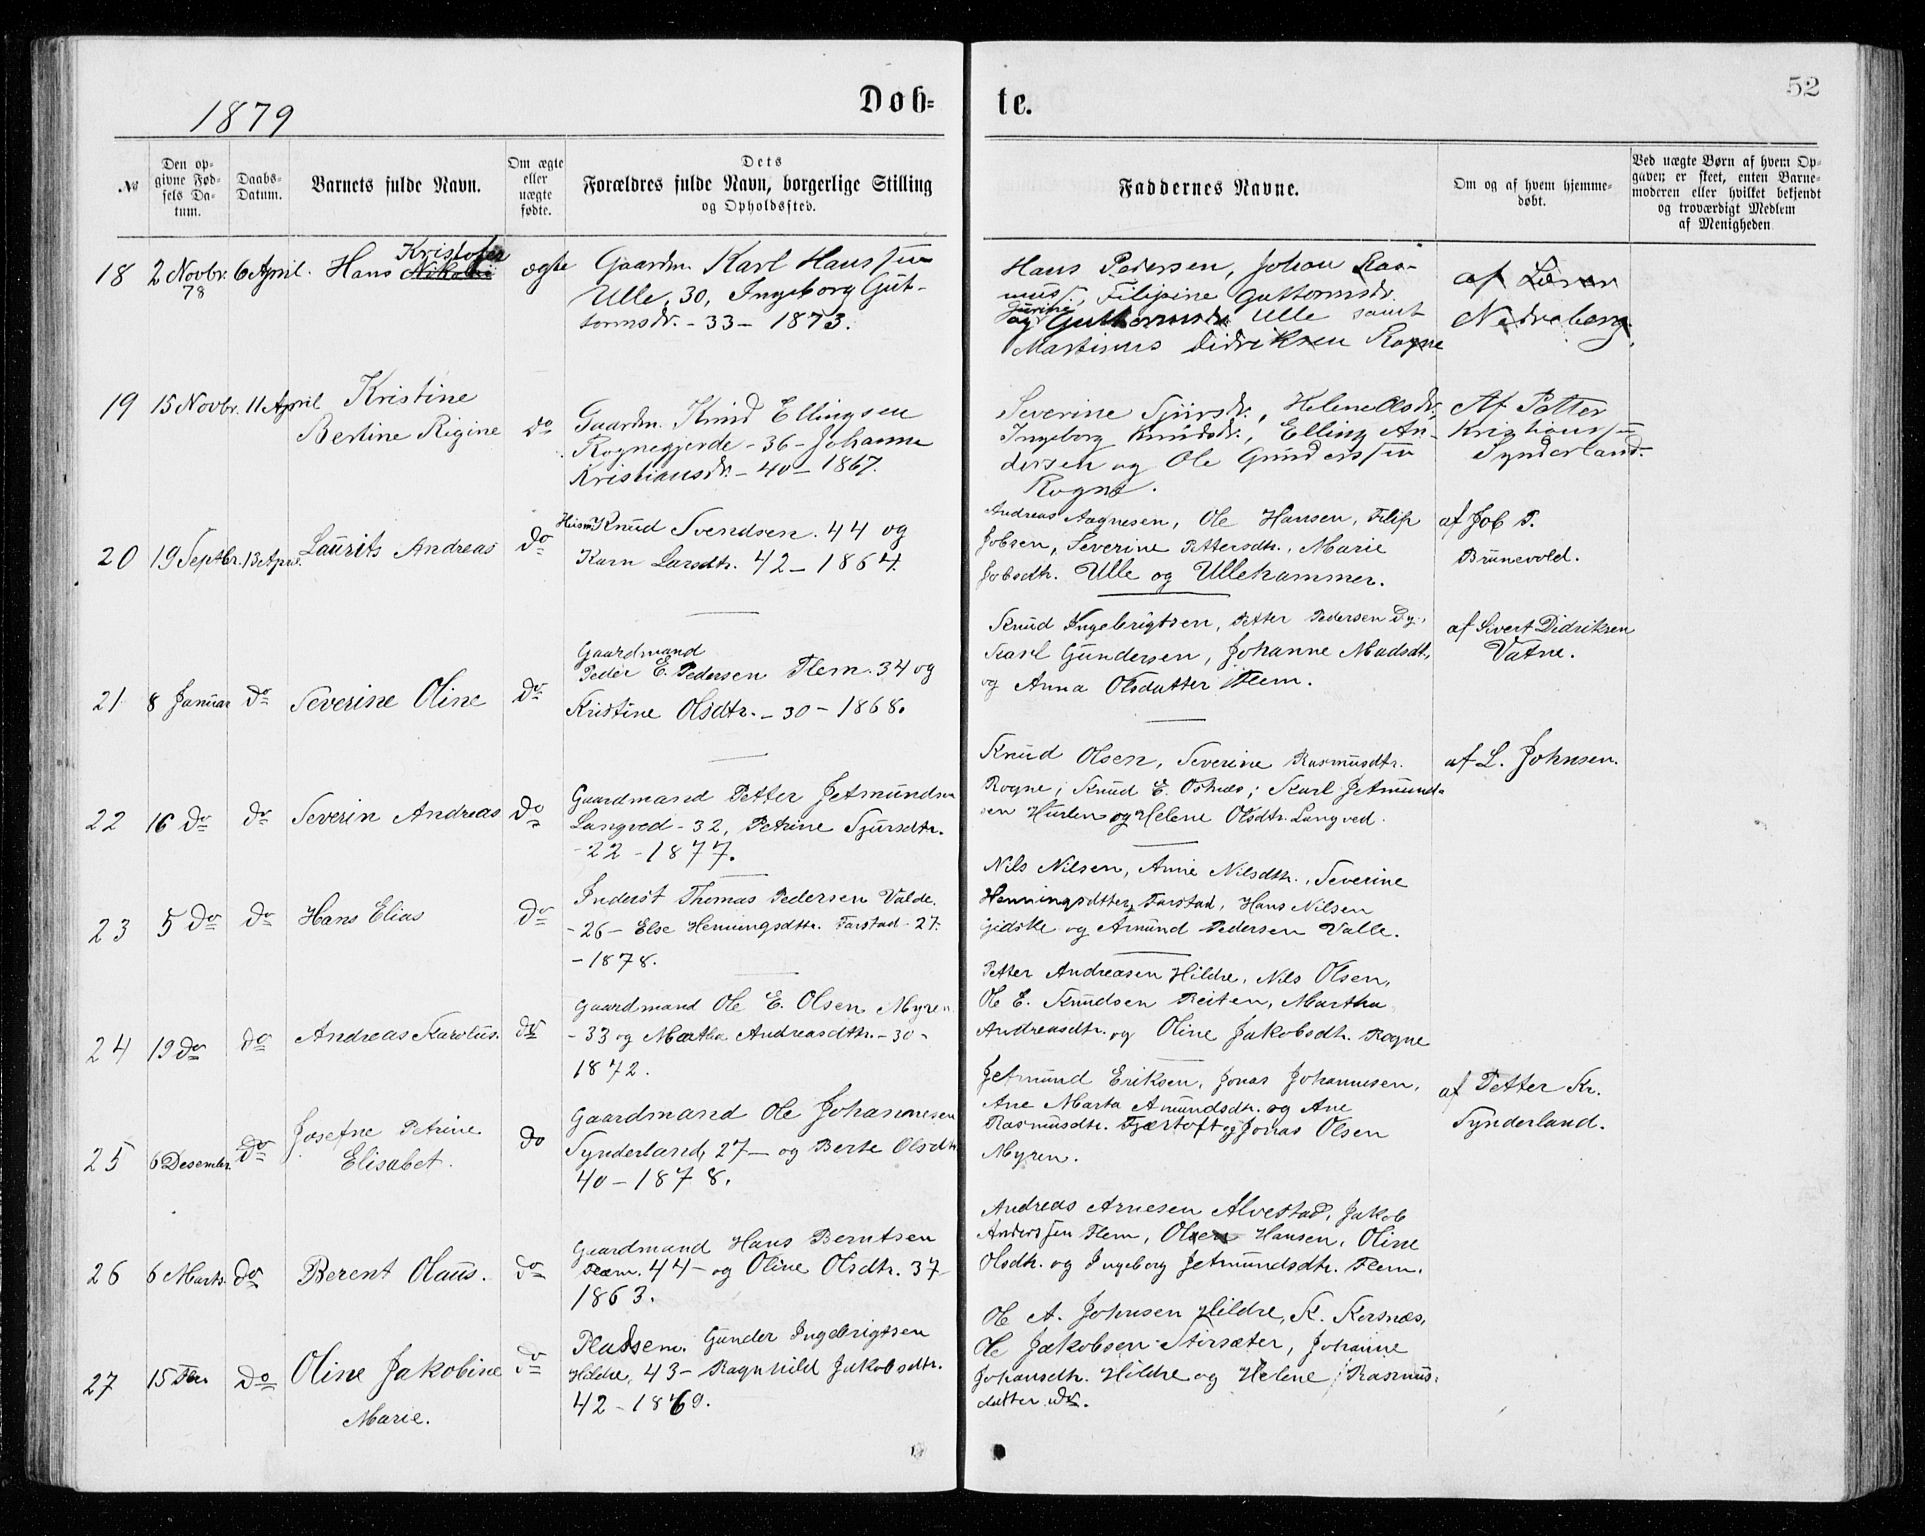 1879
Døb=
te.
52
№
Den op-
givne Fød-
sels Da-
tum.
Daabs-
Datum.
Barnets fulde Navn.
Om ægte
eller
uægte
fødte.
Dets
Forældres fulde Navn, borgerlige Stilling
og Opholdssted.
Faddernes Navne.
Om og af hvem hjemme-
døbt.
Ved uægte Børn af hvem Op-
gaven er skeet, enten Barne-
moderen eller hvilket bekjendt
og troværdigt Medlem
af Menigheden
18 2 Novbr. 78 6 April. Hans Kristofer ægte
Gaardm. Karl Hanssen
Ulle, 30, Ingeborg Gut-
tormsdr. - 33 - 1873.
Hans Pedersen, Johan Ras-
mus., Filipine Guttormsdr.
og Gurine Guttormsdr. Ulle samt
Martinus Didriksen Rogne
af Lærer
Nedreberg.
19 15 Novbr. 11 April Kristine
Bertine Rigine do
Gaardm. Knud Ellingsen
Rognegjerde - 36 - Johanne
Kristiansdr. - 40 - 1867.
Severine Sjursdr., Helene Olsdr.,
Ingeborg Knudsdr., Elling An-
dersen og Ole Gunderssen
Rogne.
Af Petter
Kristianssen
Synderland.
20 19 Septbr. 13 April. Laurits Andreas do
Huusm. Knud Svendsen. 44 og
Karn Larsdtr. 42 - 1864.
Andreas Aagnesen, Ole Hansen, Filip
Jobsen, Severine Pettersdtr., Marie
Jobsdtr. Ulle og Ullehammer.
af Job P.
Brunevold.
21 8 Januar do Severine Oline do
Gaardmand
Peder E. Pedersen Flem. 34 og
Kristine Olsdtr. - 30 - 1868.
Knud Ingebrigtsen, Petter Pedersen Dy,
Karl Gundersen, Johanne Madsdt,
og Anna Olsdatter Flem.
af Sivert Didriksen
Vatne.
22 16 do do Severin Andreas do
Gaardmand Petter Jetmundsen
Langved - 32, Petrine Sjursdtr.
- 22 - 1877.
Knud Olsen, Severine Rasmusdtr.
Rogne; Knud E. Osnæs; Karl Jetmund-
sen Hurlen og Helene Olsdtr. Langved.
af L. Johnsen.
23 5 do do Hans Elias do
Inderst Thomas Pedersen Valde.
- 26 - Else Henningsdttr. Farstad - 27.
- 1878.
Nils Nilsen, Anne Nilsdtr., Severine
Henningsdtter Farstad, Hans Nilsen
Gidske og Amund Pedersen Valle.
24 19 do do Andreas Karolus. do
Gaardmand Ole E. Olsen Myren
- 33 og Martha Andreasdttr. - 30 -
1872.
Petter Andreasen Hildre, Nils Olsen,
Ole E. Knudsen Reiten, Martha
Andreasdtr. og Oline Jakobsdtr. Rogne
25 6 Desember. do Josefne Petrine
Elisabet. do
Gaardmand Ole Johannesen
Synderland, 27 - og Berte Olsdtr
40 - 1878.
Jetmund Eriksen, Jonas Johannesen,
Ane Marta Amundsdtr. og Ane
Rasmusdtr. Fjærtoft og Jonas Olsen
Myren.
af Petter Kr.
Synderland.
26 6 Marts. do Berent Olaus. do
Gaardmand Hans Berntsen
Flem. 44 - og Oline Olsdtr. 37
1863.
Andreas Arnesen Alvestad, Jakob
Anderssen Flem, Olsen Hansen, Oline
Olsdtr. og Ingeborg Jetmundsdtr. Flem.
27 15 Febr do Oline Jakobine
Marie. do
Pladsem. Gunder Ingebrigtsen
Hildre, 43 - Ragnhild Jakobsdtr.
42 - 1869.
Ole A. Johnsen Hildre, K. Korsnæs,
Ole Jakobsen Storsæter, Johanne
Johansdtr. Hildre og Helene Rasmus-
datter